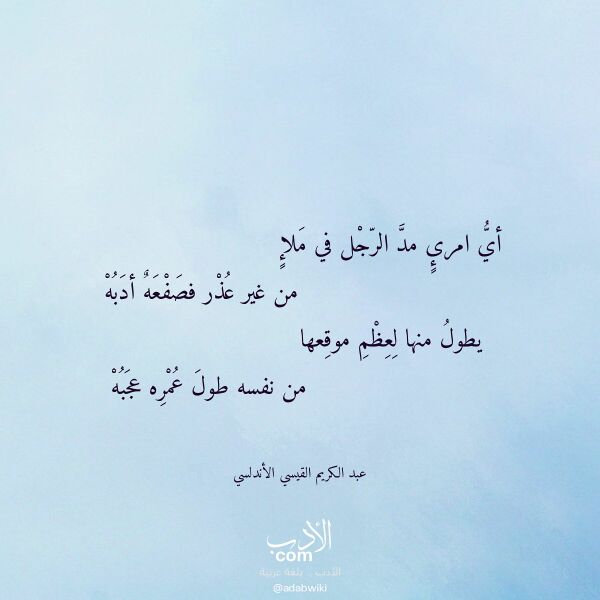 أيُّ امرىٍٕ مدَّ الرّجْل في مَلإٍ
من غير عُذْر فصَفْعَهٌ أدَبُهْ
يطولُ منها لِعِظْمِ موقِعها
من نفسه طولَ عُمْرِه عجَبُهْ
عبد الكريم القيسي الأندلسي
الأدب
com
الأدب .. بلغة عربية
@adabwiki